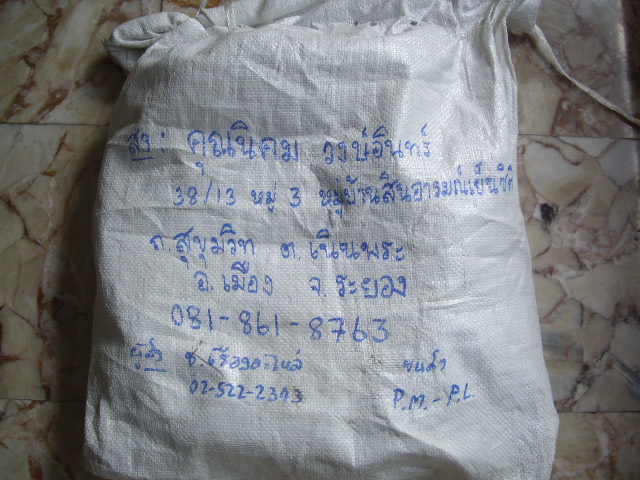 ส่ง : คุณนิคม วงษ์อินทร์
38/13 หมู่ 3 หมู่บ้านสินอารมณ์เย็น
ถ.สุขุมวิท ต.เนินพระ
อ.เมือง จ.ระยอง
081-861-8763
ผู้ส่ง ช.เรืองอะไหล่ ขนส่ง
02-522-2393 P.M.-P.L